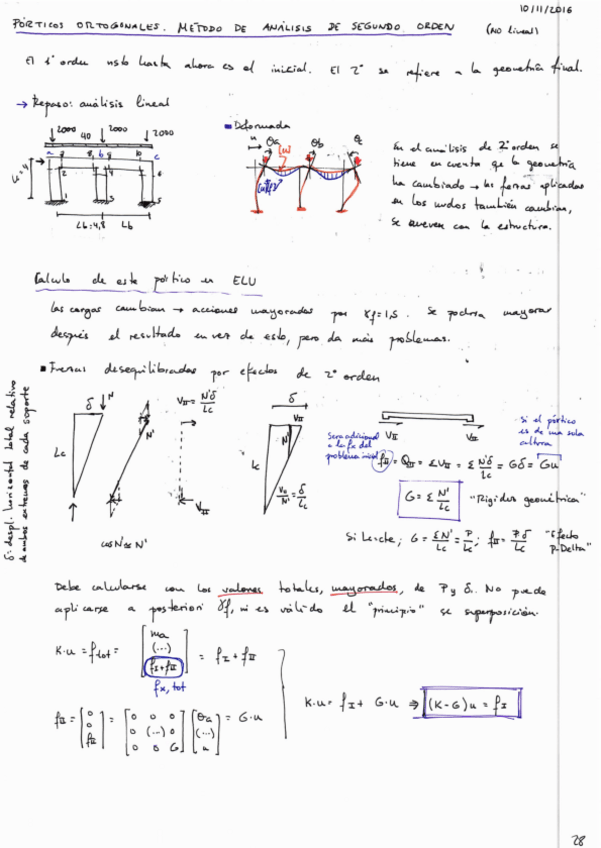 10/11/2016
PÓRTICOS ORTOGONALES. MÉTODO DE ANÁLISIS DE SEGUNDO ORDEN (NO lineal)
El 1º orden visto hasta ahora es el inicial. El 2º se refiere a la geometría final.
→ Repaso: análisis lineal
2000 2000 2000
40
a b c
Lc=4
Lb=4,8 Lb
▪ Deformada
u θa θb θc
En el análisis de 2º orden se
tiene en cuenta que la geometría
ha cambiado → las fuerzas aplicadas
en los nudos también cambian,
se mueven con la estructura.
Cálculo de este pórtico en ELU
Las cargas cambian → acciones mayoradas por γf=1,5. Se podría mayorar
después el resultado en vez de esto, pero da más problemas.
▪ Fuerzas desequilibradas por efectos de 2º orden
δ: despl. horizontal total relativo
de ambos extremos de cada soporte
δ N
Lc
N'
cos N ≈ N'
VII = N'δ/Lc
VII
δ
VII
N'
Lc
= δ/Lc
VII VII
Si el pórtico
es de una sola
altura
Será adicional
a la fx del
problema inicial
fII = QIII = ΣVII = Σ N'δ/Lc = Gδ = Gu
G = Σ N'/Lc "Rigidez geométrica"
Si Lc cte; G = ΣN'/Lc = P/Lc; fII = Pδ/Lc "Efecto P-Delta"
Debe calcularse con los valores totales, mayorados, de P y δ. No puede
aplicarse a posteriori γf, ni es válido el "principio" se superposición.
K·u = ftot = [ma (...) fI+fII] = fI + fII
fx, tot
fII = [0 0 fII] = [0 0 0 0 (...) 0 0 0 G] [θa (...) u] = G·u
K·u = fI + G·u ⇒ (K-G)u = fI
28